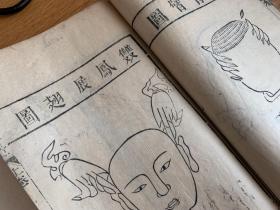 雙鳳展翅圖
圖